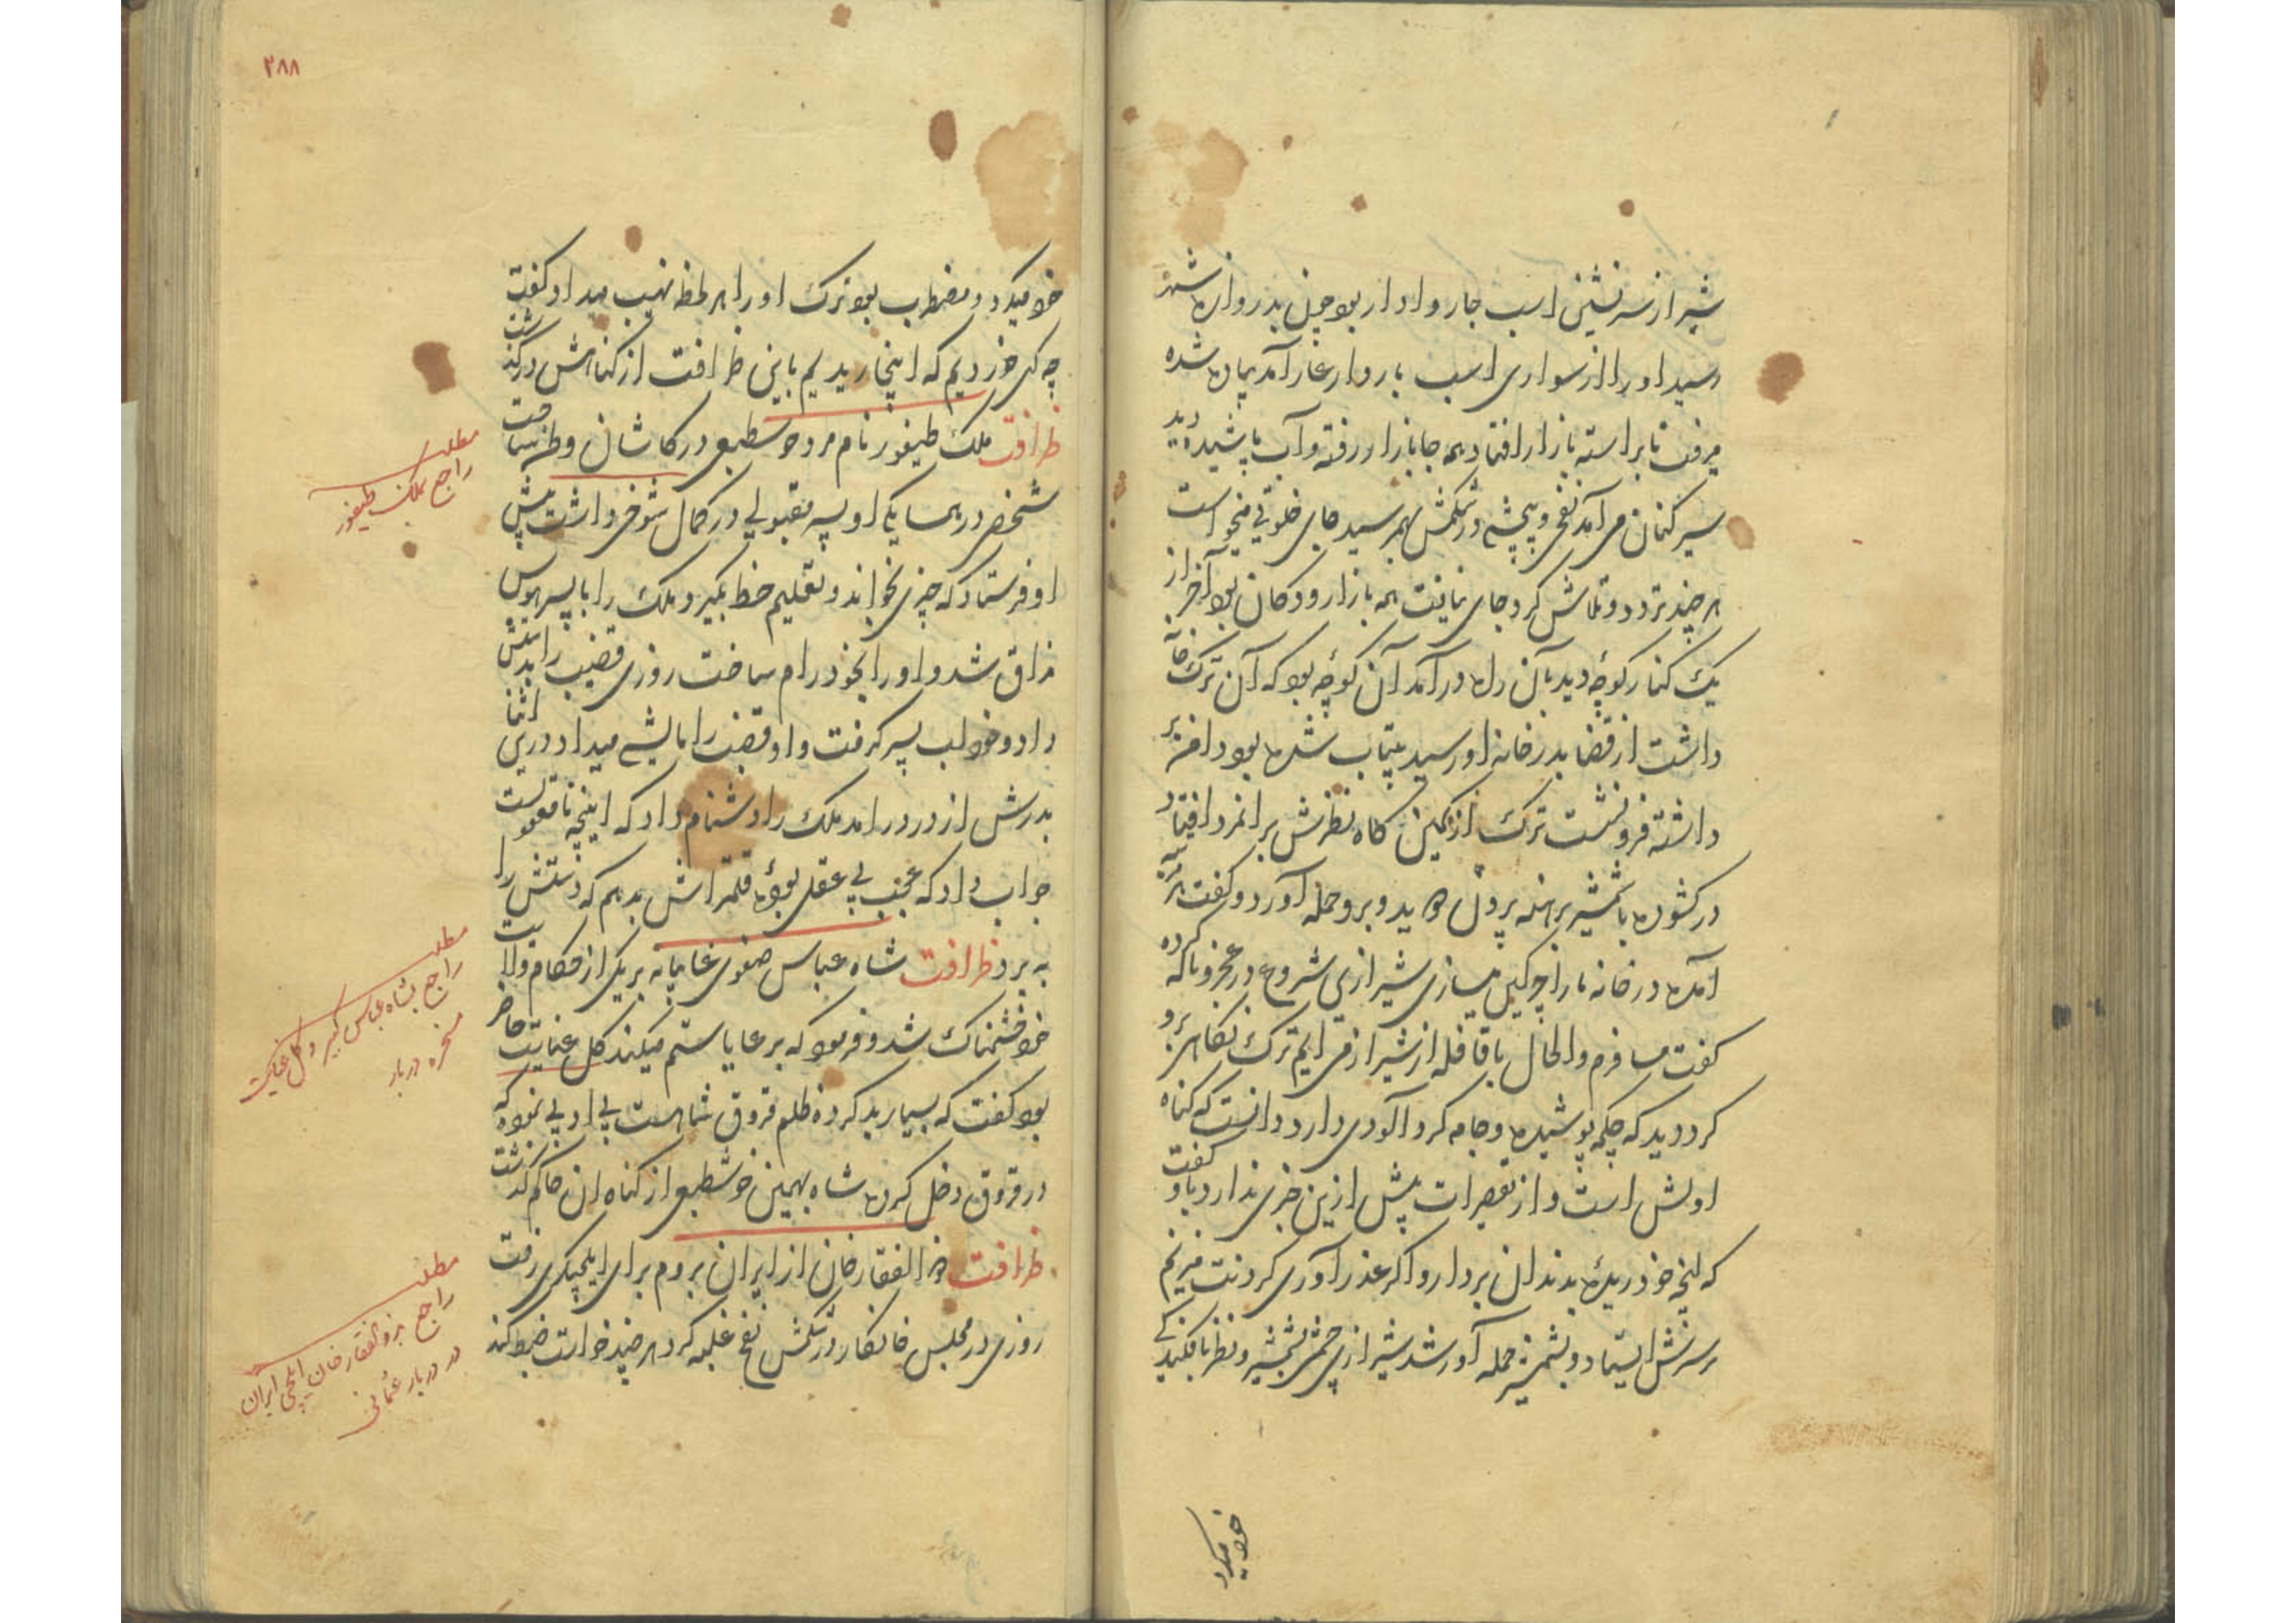 شیراز سرنشین اسب جاروادار بود چون بدروازه شهر
رسید او را از سواری اسب باروار عار آمد پیاده شده
میرفت تا براسته بازار افتاد همه جا بازارا رفته و آب پاشیده دید
سیر کنان می آمد نفخ و پیچشی در شکمش بهم رسید جای خلوتی میخواست
هر چند تردد و تلاش کرد جای نیافت همه بازار و دکان بود آخر از
یک کنار کوچه دید بآن راه در آمد آن کوچه بود که آن ترک خانه
داشت از قضا بدر خانه او رسید بیتاب شده بود دامن بر
داشته فرو نشست ترک از کمین کاه نظرش بر انمرد افتاد
در کشوده با شمشیر برهنه برون دوید و برو حمله آورد و کفت هر شب
آمده در خانه ما را چرکین میسازی شیرازی شروع در عجز و ناله کرده
کفت مسافرم و الحال با قافله از شیراز می ایم ترک نکاه برو
کرد دید که چکمه پوشیده و جامه کرد آلودی دارد دانست که کناه
اولش است و از تقصیرات پیش ازین خبری ندارد باو کفت
که انچه خود ریده بدندان بردار و اکر عذر آوری کردنت میزنم
بر سرش ایستاد و بشمشیر حمله آور شد شیرازی چشمی بشمشیر و نظر بافکنده
خود میکرد
۲۸۸
خود میکرد و مضطرب بود ترک او را هر لحظه نهیب میداد کفت
چه کهی خوردیم که اینجا ریدیم باین ظرافت از کناهش درکذشت
ظرافت ملک طیفور نام مرد خوش طبعی در کاشان وطن ساخت
شخصی در همسایکی او پسر مقبولی در کمال شوخی داشت پیش
او فرستاد که چیزی بخواند و تعلیم خط بکیرد ملک را با پسر هوس
مذاق شد و او را بخود رام ساخت روزی قضیب را بدستش
داد و خود لب پسر کرفت و او قضیب را مالشی میداد درین اثنا
پدرش از در درامد ملک را دشنام داد که این چه نامعقولیست
جواب داد که عجب بی عقلی بوده قلمتراش بدهم که دستش را
به برد ظرافت شاه عباس صفوی غایبانه بر یکی از حکام ولایت
خود خشمناک شد و فرمود که بر عایا ستم میکند کل عنایت حاضر
بود کفت که بسیار بد کرده ظلم قروق شماست بی ادبی نموده که
در قروق دخل کرده شاه بهمین خوش طبعی از کناه ان حاکم کذشت
ظرافت ذو الفقار خان از ایران بروم برای ایلچیکری رفت
روزی در مجلس خانکار در شکمش نفخ غلبه کرد هر چند خواست ضبط کند
مطلب
راجع بملک طیفور
مطلب
راجع بشاه عباس کبیر و کل عنایت
مسخره دربار
مطلب
راجع بذوالفقار خان ایلچی ایران
در دربار عثمانی